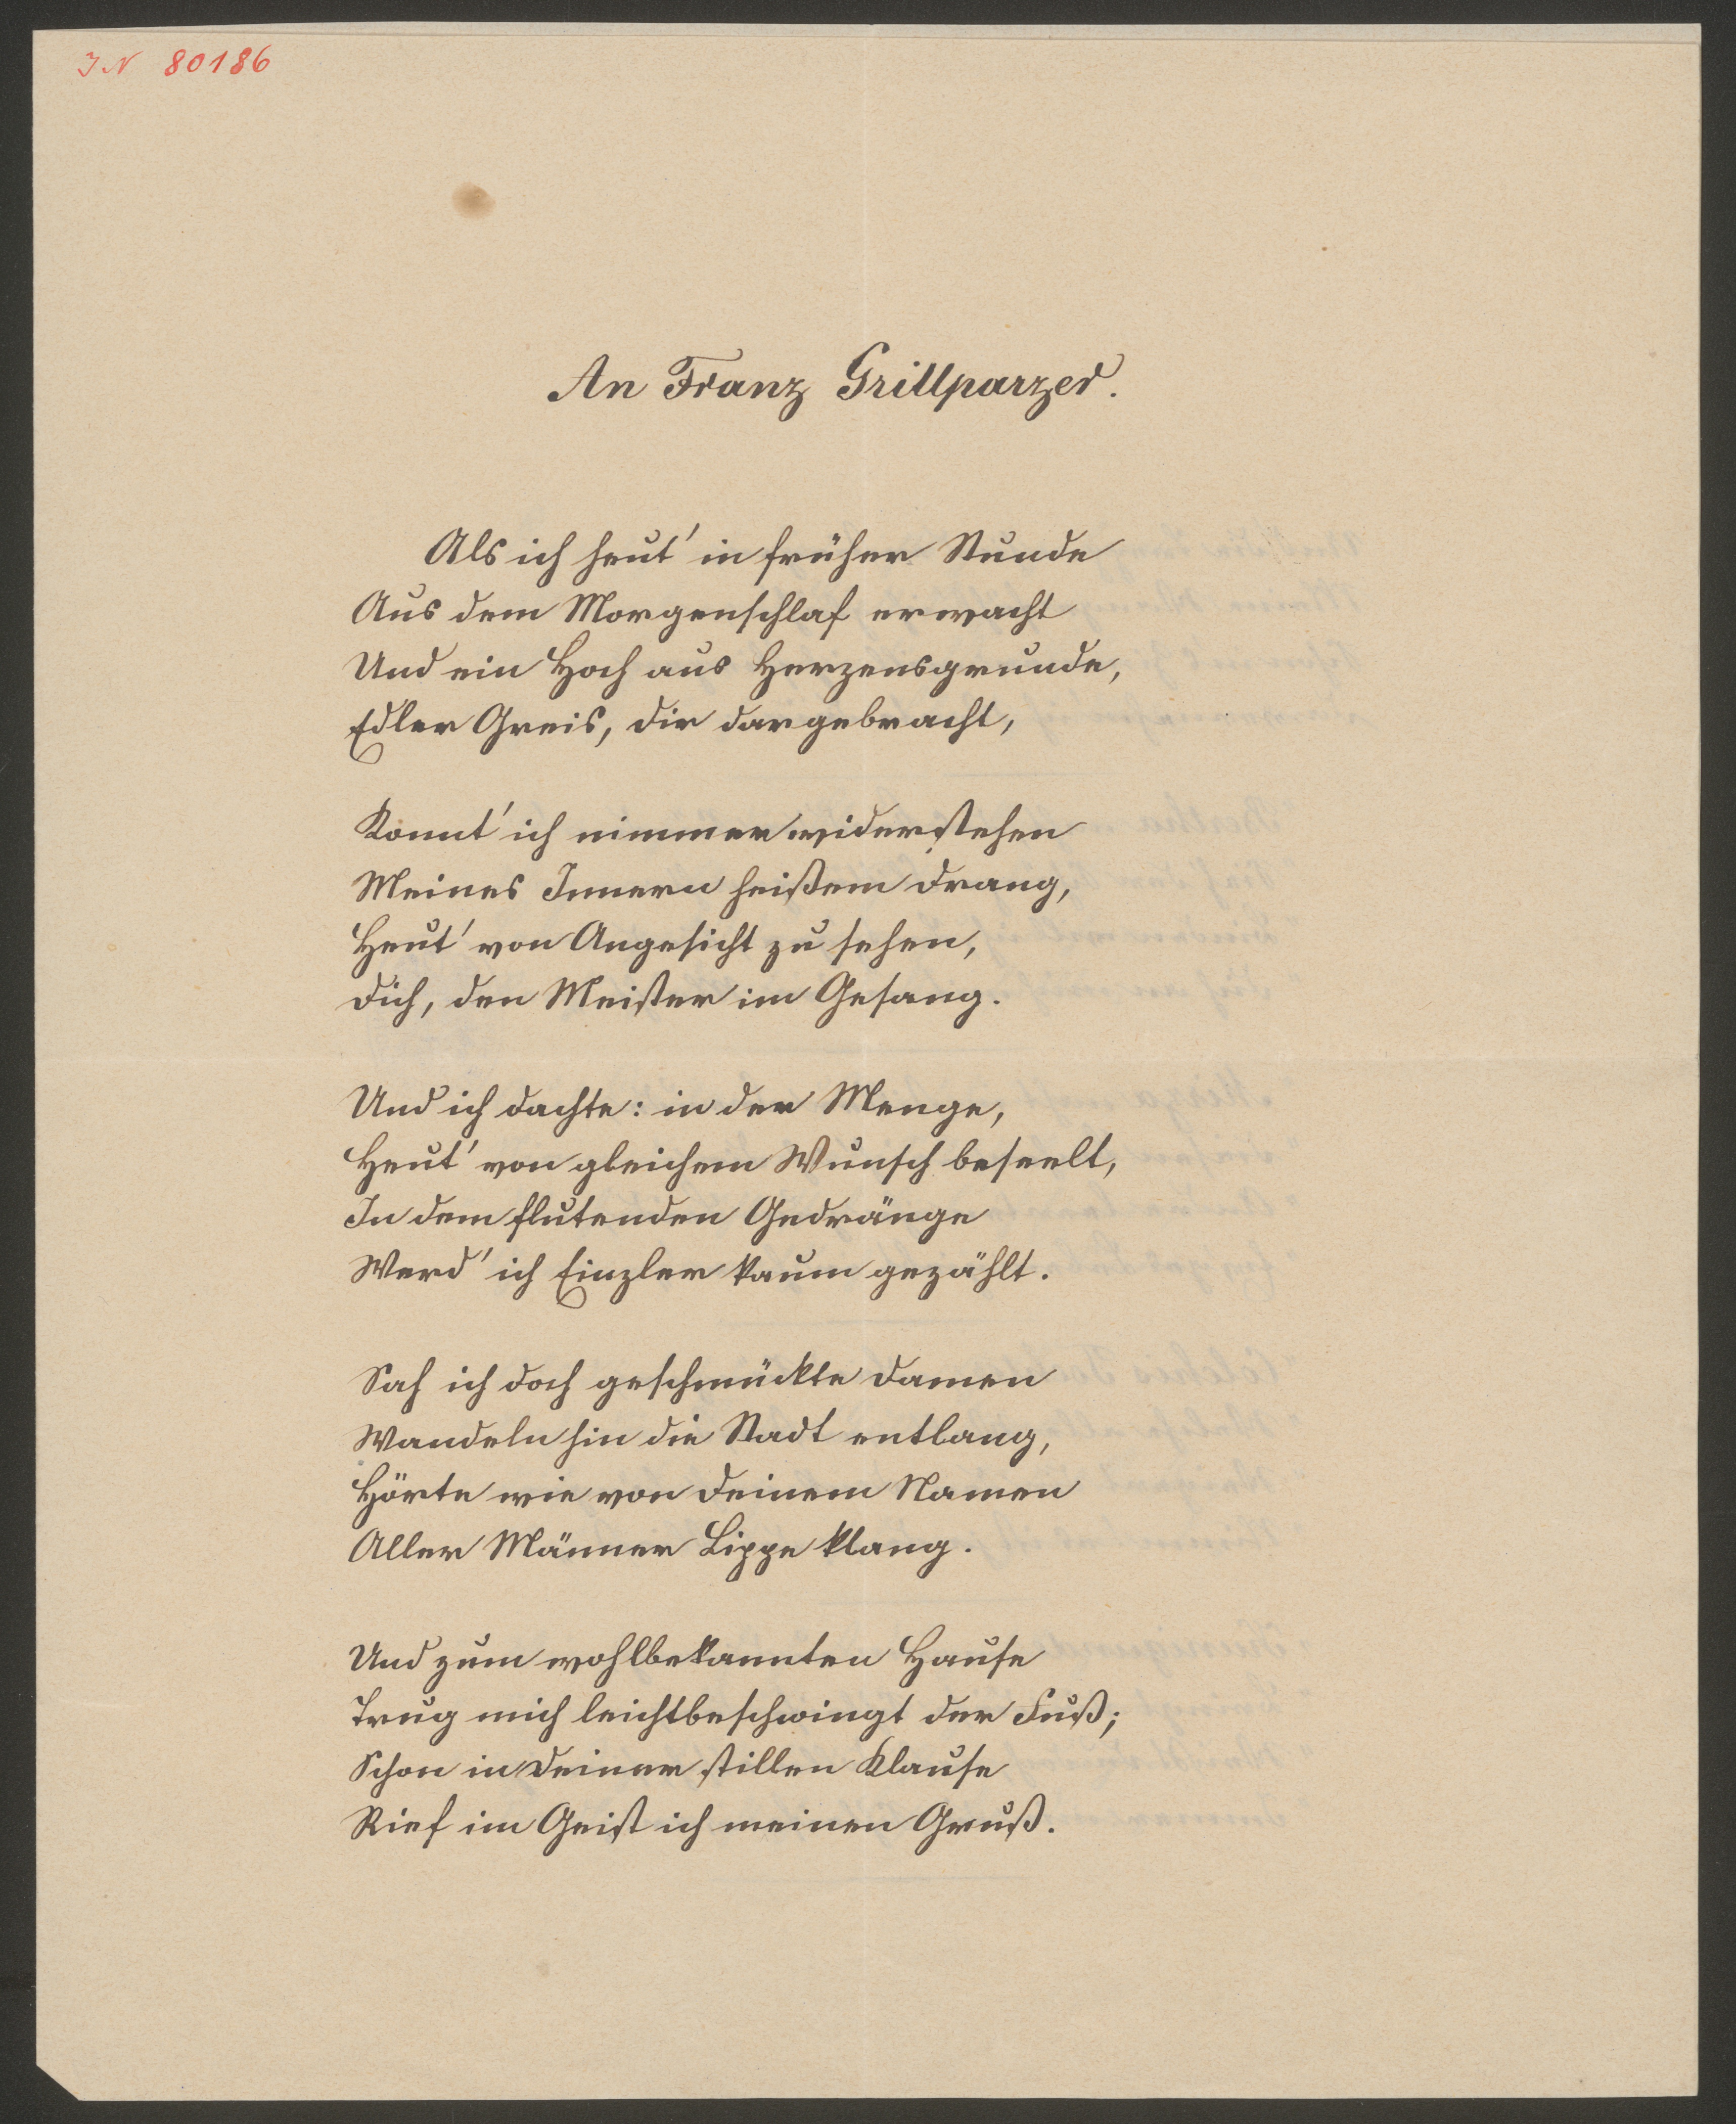 IN 80186
An Franz Grillparzer.
Als ich heut' in früher Stunde
Aus dem Morgenschlaf erwacht
Und ein Hoch aus Herzensgrunde,
Edler Greis, dir dargebracht,
Konnt' ich nimmer widerstehen
Meines Innern heißem Drang,
Heut' von Angesicht zu sehen,
Dich, den Meister im Gesang.
Und ich dachte: in der Menge,
Heut' von gleichem Wunsch beseelt,
In dem flutenden Gedränge
Werd' ich Einzler kaum gezählt.
Sah ich doch geschmückte Damen
Wandeln hin die Stadt entlang,
Hörte wie von Deinem Namen
Aller Männer Lippe klang.
Und zum wohlbekannten Hause
Trug mich leichtbeschwingt der Fuß;
Schon in Deiner stillen Klause
Rief im Geist ich meinen Gruß.